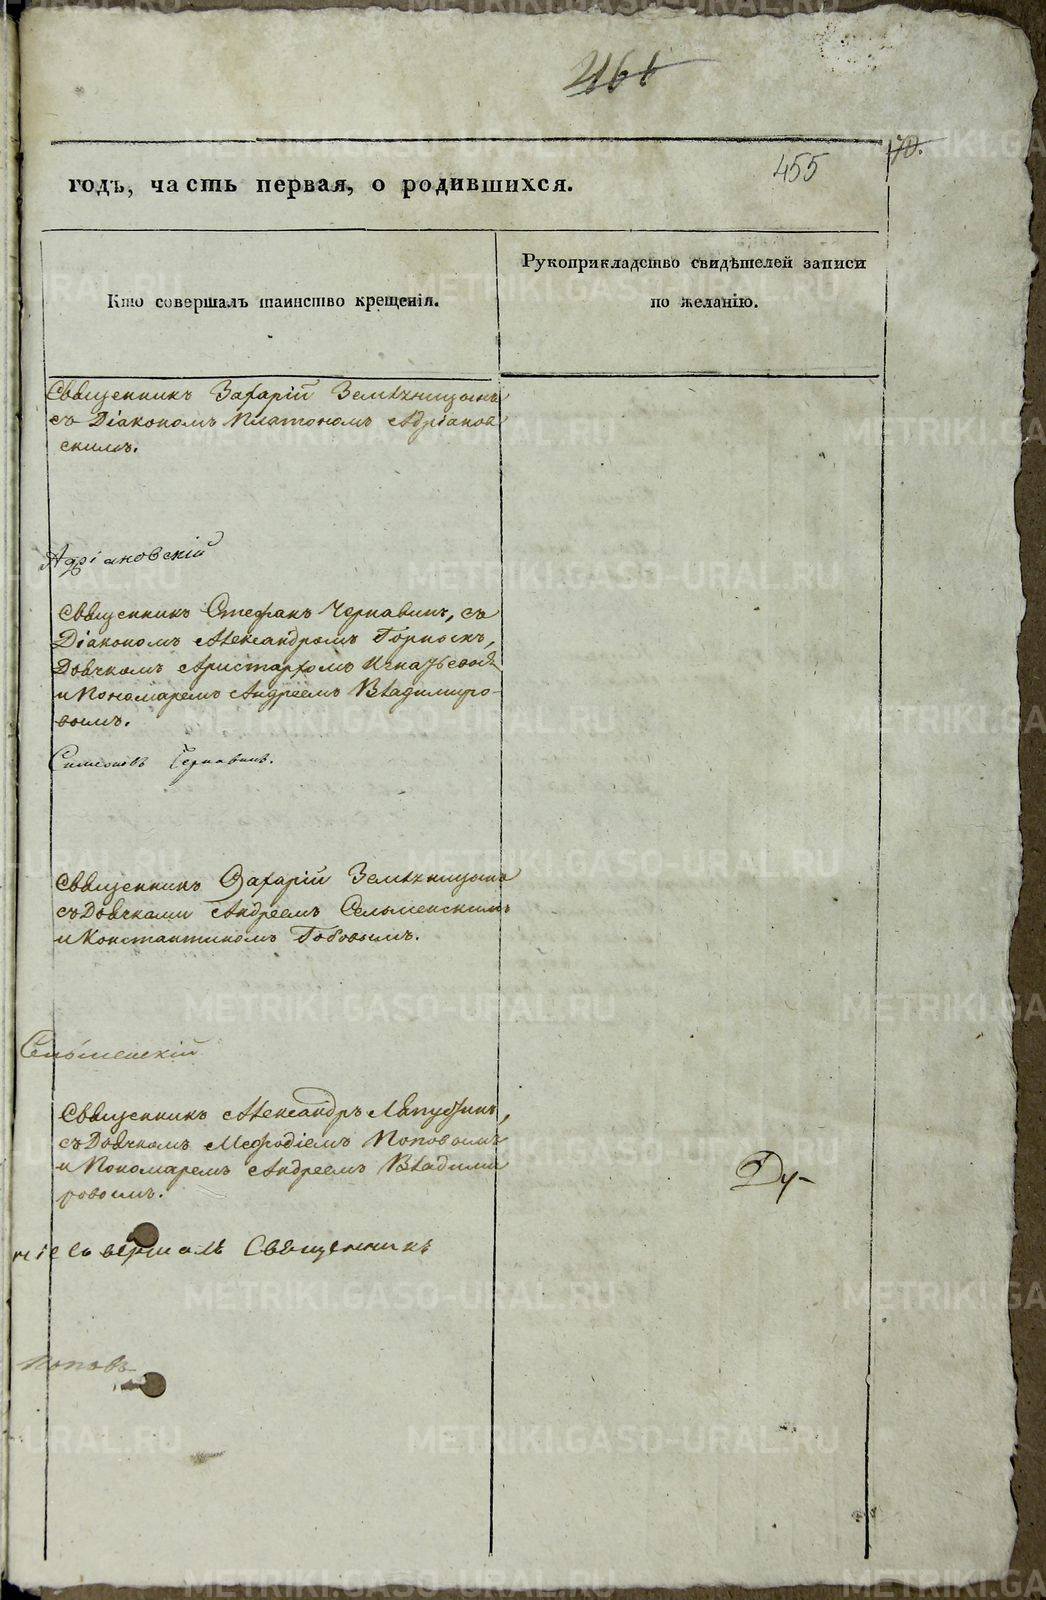 455
годъ, часть первая, о родившихся.
Кто совершалъ таинство крещенія.
Рукоприкладство свидѣтелей записи
по желанію.
Священникъ Захарій Земляницынъ
съ Діакономъ Платономъ Адріанов
скимъ.
Адріановскій
Священникъ Стефанъ Чернавинъ, съ
Діакономъ Александромъ
Дьячкомъ Аристархомъ
и Пономаремъ Андреемъ Владимиро-
вымъ.
Чернавинъ.
Священникъ Захарій Земляницынъ
съ Дьячками Андреемъ Сельменскимъ
и Константиномъ
Сельменскій
Священникъ Александръ Ляпустинъ,
съ Дьячкомъ Мефодіемъ Поповымъ
и Пономаремъ Андреемъ Владими
ровымъ.
ніе совершалъ Священникъ
Ду-
Поповъ
METRIKI.GASO-URAL.RU